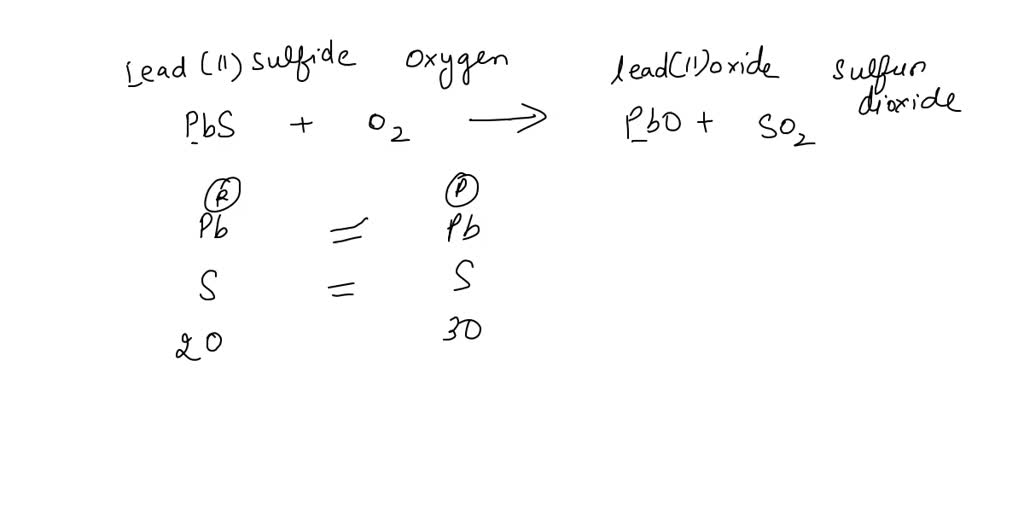 Lead (II) sulfide Oxygen lead(II)oxide sulfur dioxide
PbS + O2 → PbO + SO2
R P
Pb = Pb
S = S
2O 3O